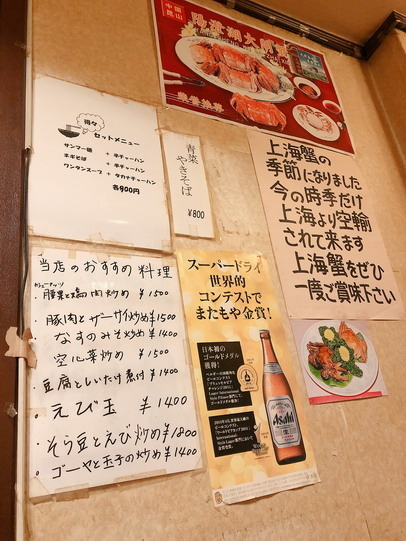 中国
昆山
陽澄湖大閘蟹
得々
セットメニュー
サンマー麺 + 半チャーハン
ネギそば + 半チャーハン
ワンタンスープ + タカナチャーハン
各900円
青菜
やきそば
¥800
上海蟹の
季節になりました
今の時季だけ
上海より空輸
されて来ます
上海蟹をぜひ
一度ご賞味下さい
当店のおすすめ料理
カシューナッツ
・腰果と鶏肉炒め ¥1500
豚肉とザーサイ炒め¥1500
なすのみそ炒め¥1400
・空心菜炒め ¥1500
豆腐としいたけ煮付 ¥1400
・えび玉 ¥1400
・そら豆とえび炒め¥1800
・ゴーヤと玉子の炒め¥1400
スーパードライ
世界的
コンテストで
またもや金賞!
日本初の
ゴールドメダル
獲得!
Asahi